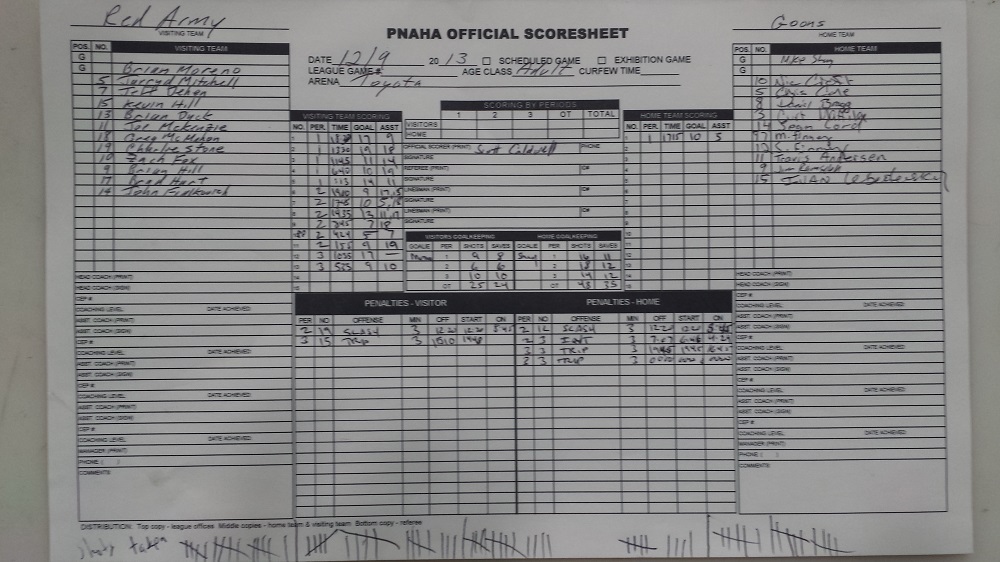 Red Army
VISITING TEAM
Goons
HOME TEAM
PNAHA OFFICIAL SCORESHEET
DATE 12/9 2013 SCHEDULED GAME EXHIBITION GAME
LEAGUE GAME# AGE CLASS Adult CURFEW TIME
ARENA Toyota
POS. NO. VISITING TEAM
G
G Brian Moreno
5 Jarryd Mitchell
7
15 Kevin Hill
13 Brian Dyck
11 Joe McKenzie
18 Greg McMahon
19 Charlie Stone
10 Zach Fox
9 Brian Hill
17 Brad Hart
14 John Fialkovich
HEAD COACH (PRINT)
HEAD COACH (SIGN)
CEP #
COACHING LEVEL DATE ACHIEVED
ASST. COACH (PRINT)
ASST. COACH (SIGN)
CEP #
COACHING LEVEL DATE ACHIEVED
ASST. COACH (PRINT)
ASST. COACH (SIGN)
CEP #
COACHING LEVEL DATE ACHIEVED
ASST. COACH (PRINT)
ASST. COACH (SIGN)
CEP #
COACHING LEVEL DATE ACHIEVED
MANAGER (PRINT)
PHONE ( )
COMMENTS:
SCORING BY PERIODS
1 2 3 OT TOTAL
VISITORS
HOME
OFFICIAL SCORER (PRINT) Scott Caldwell PHONE
SIGNATURE
REFEREE (PRINT) ID#
SIGNATURE
LINESMAN (PRINT) ID#
SIGNATURE
LINESMAN (PRINT) ID#
SIGNATURE
VISITING TEAM SCORING
NO. PER. TIME GOAL ASST
1 1 17 9
2 1 1330 19 18
3 1 1145 11 14
4 1 640 10 19
5 1 113 14 11
6 2 9 17,15
7 2 10
8 2 1435 13 11,17
9 2 7 18
10 2 424 5 7
11 2 9 19
12 3 1035 17 —
13 3 535 9 10
14
15
HOME TEAM SCORING
NO. PER. TIME GOAL ASST
1 1 1715 10 5
VISITORS GOALKEEPING HOME GOALKEEPING
GOALIE PER SHOTS SAVES GOALIE PER SHOTS SAVES
1 9 8 1 16 11
2 6 6 2 18 12
3 10 10 3 14 12
OT 25 24 OT 48 35
PENALTIES - VISITOR PENALTIES - HOME
PER NO OFFENSE MIN OFF START ON PER NO OFFENSE MIN OFF START ON
2 19 SLASH 3 2 12 SLASH 3
3 15 TRIP 3 1010 2 3 INT 3
3 3 TRIP 3
3 TRIP 3
POS. NO. HOME TEAM
G Mike
G
10 Nic
5 Chris
8 David Bragg
3 Curt
14 Sean Cord
97 M. Finney
12 S. Finney
11 Travis Andersen
9
15
HEAD COACH (PRINT)
HEAD COACH (SIGN)
CEP #
COACHING LEVEL DATE ACHIEVED
ASST. COACH (PRINT)
ASST. COACH (SIGN)
CEP #
COACHING LEVEL DATE ACHIEVED
ASST. COACH (PRINT)
ASST. COACH (SIGN)
CEP #
COACHING LEVEL DATE ACHIEVED
ASST. COACH (PRINT)
ASST. COACH (SIGN)
CEP #
COACHING LEVEL DATE ACHIEVED
MANAGER (PRINT)
PHONE ( )
COMMENTS:
DISTRIBUTION: Top copy - league offices Middle copies - home team & visiting team Bottom copy - referee
shots taken